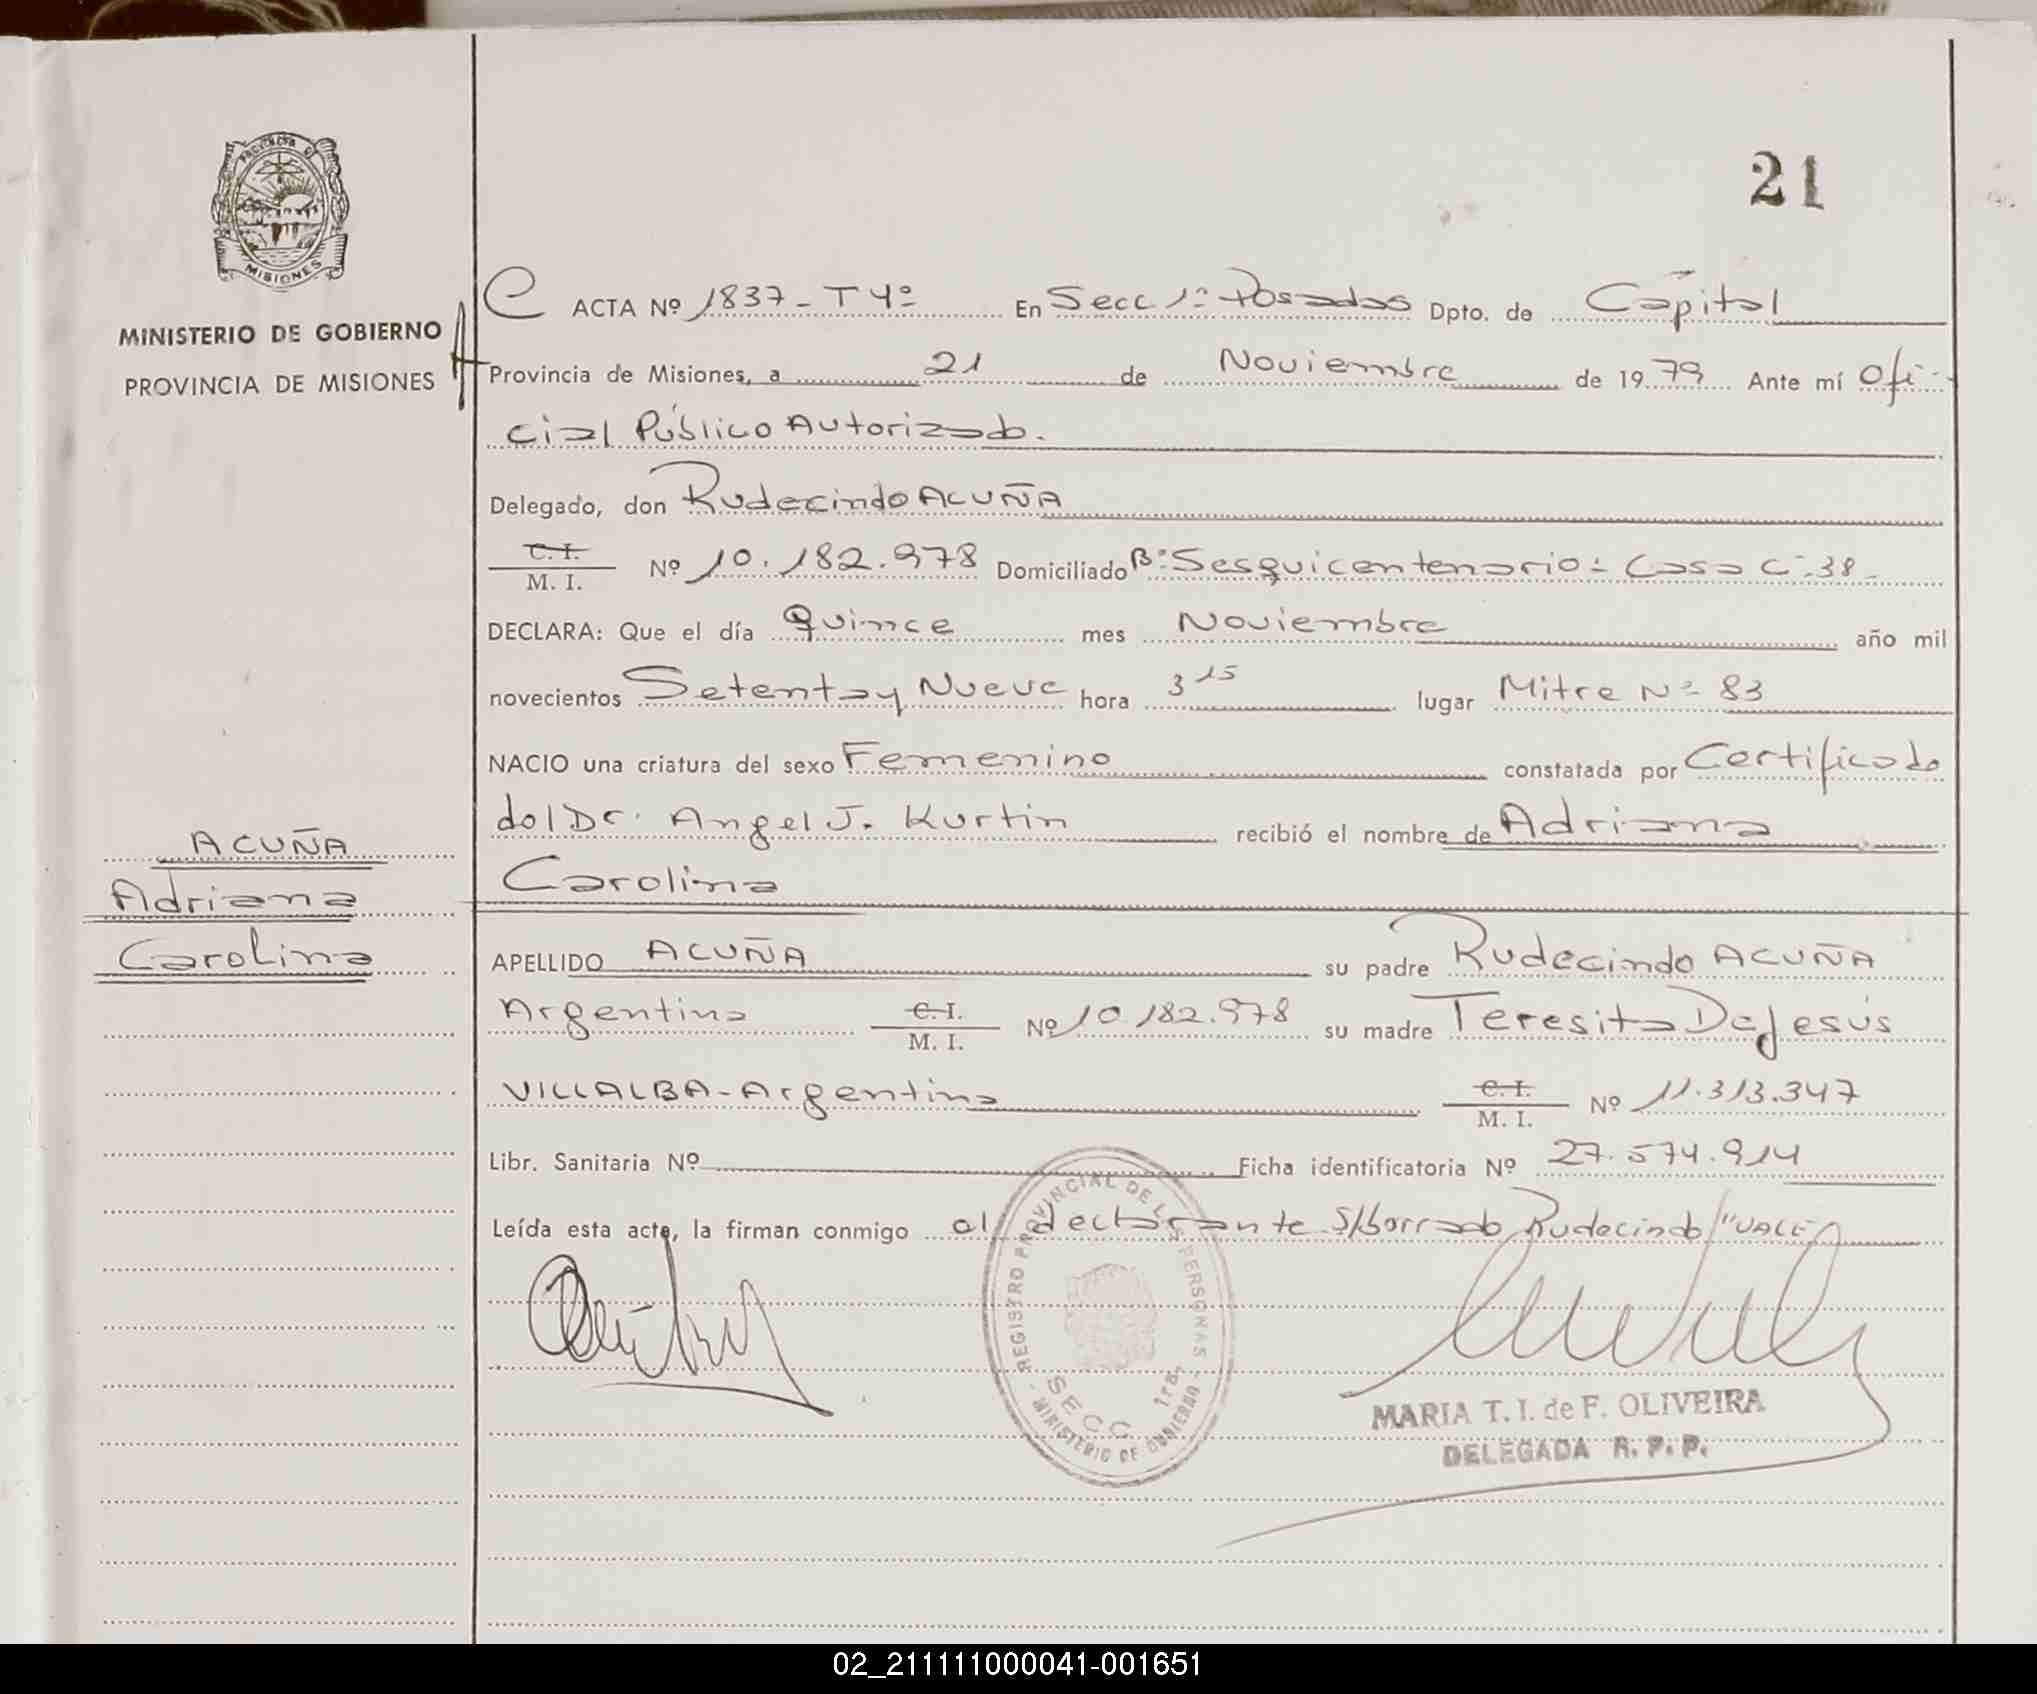 21
PROVINCIA DE
MISIONES
MINISTERIO DE GOBIERNO
PROVINCIA DE MISIONES
ACUÑA
Adriana
Carolina
ACTA Nº 1837 - T 4º En Secc 1ª Posadas Dpto. de Capital
Provincia de Misiones, a 21 de Noviembre de 1979 Ante mí Ofi-
cial Público Autorizado.
Delegado, don Rudecindo ACUÑA
C. I.
M. I. Nº 10.182.978 Domiciliado Bº Sesquicentenario - Casa C-38-
DECLARA: Que el día Quince mes Noviembre año mil
novecientos Setenta y Nueve hora 3 15 lugar Mitre Nº 83
NACIO una criatura del sexo Femenino constatada por Certificado
del Dr. Angel J. Kurtin recibió el nombre de Adriana
Carolina
APELLIDO ACUÑA su padre Rudecindo ACUÑA
Argentino C. I.
M. I. Nº 10.182.978 su madre Teresita De Jesús
VILLALBA - Argentina C. I.
M. I. Nº 11.313.347
Libr. Sanitaria Nº Ficha identificatoria Nº 27.574.914
Leída esta acta, la firman conmigo el declarante S/borrado Rudecindo/"VALE
REGISTRO PROVINCIAL DE LAS PERSONAS
SECC 1ra.
- MINISTERIO DE GOBIERNO -
MARIA T. I. de F. OLIVEIRA
DELEGADA R. P. P.
02_211111000041-001651